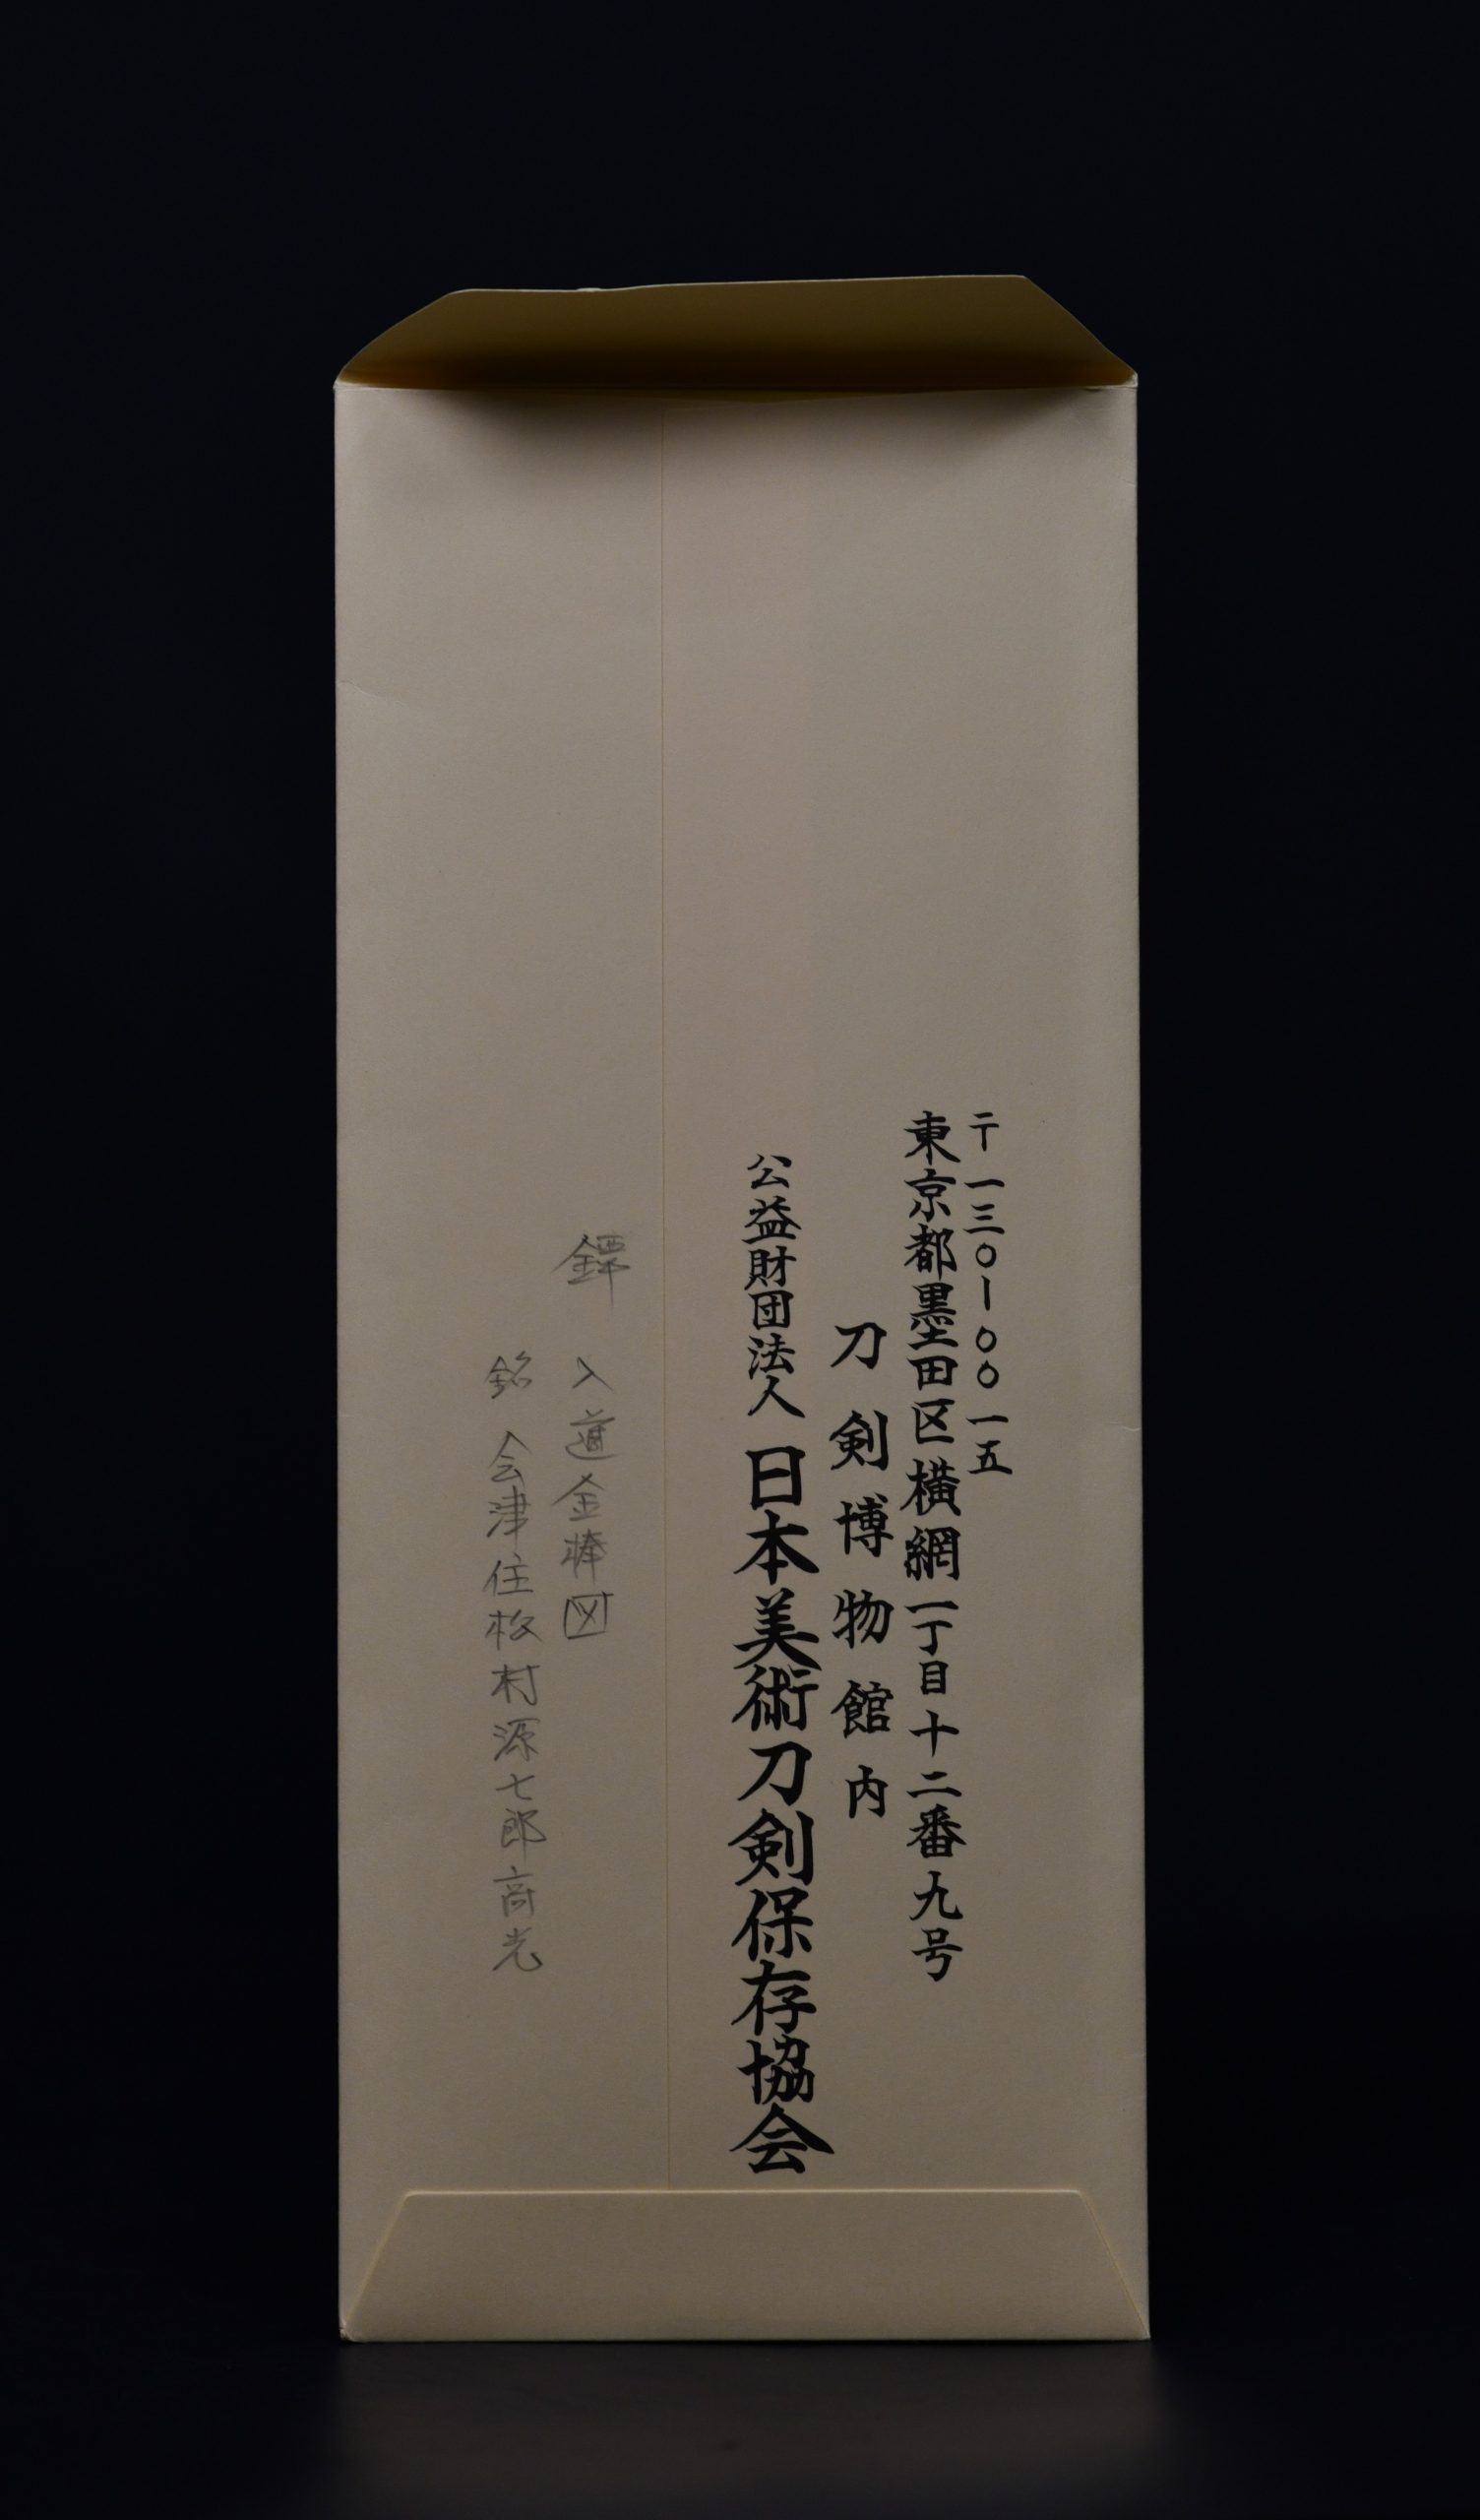 〒一三〇-〇〇一五
東京都墨田区横網一丁目十二番九号
刀剣博物館内
公益財団法人 日本美術刀剣保存協会
鐔 入道金棒図
銘 会津住松村源七郎光